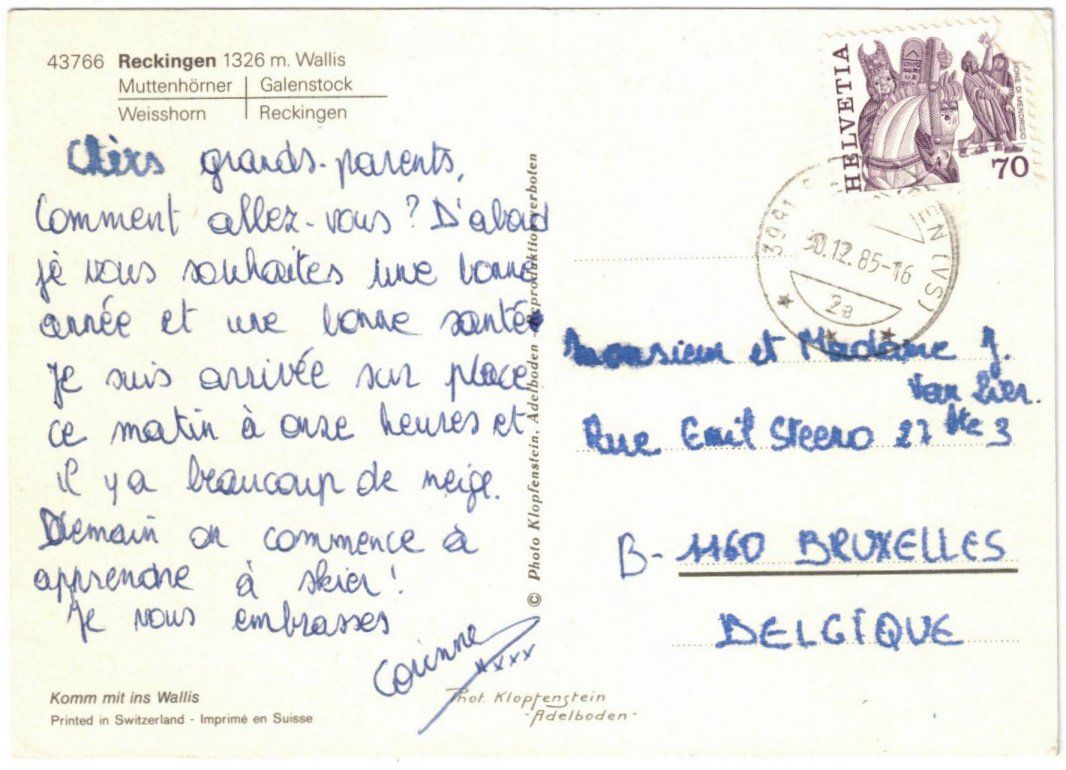 43766 Reckingen 1326 m. Wallis
Muttenhörner | Galenstock
Weisshorn | Reckingen
Chèrs grands-parents,
Comment allez-vous? D'abord
je vous souhaites une bonne
année et une bonne santé
Je suis arrivée sur place
ce matin à onze heures et
il y a beaucoup de neige.
Demain on commence à
apprendre à skier!
Je vous embrasses
Corinne
xxxx
Komm mit ins Wallis
Printed in Switzerland - Imprimé en Suisse
© Photo Klopfenstein, Adelboden - Reproduktion verboten
Phot. Klopfenstein
-Adelboden-
HELVETIA
70
3991
EN (VS)
30.12.85-16
2a
Monsieur et Madame J.
Van Lier.
Rue Emil Steeno 27 bte 3
B- 1160 BRUXELLES
BELGIQUE